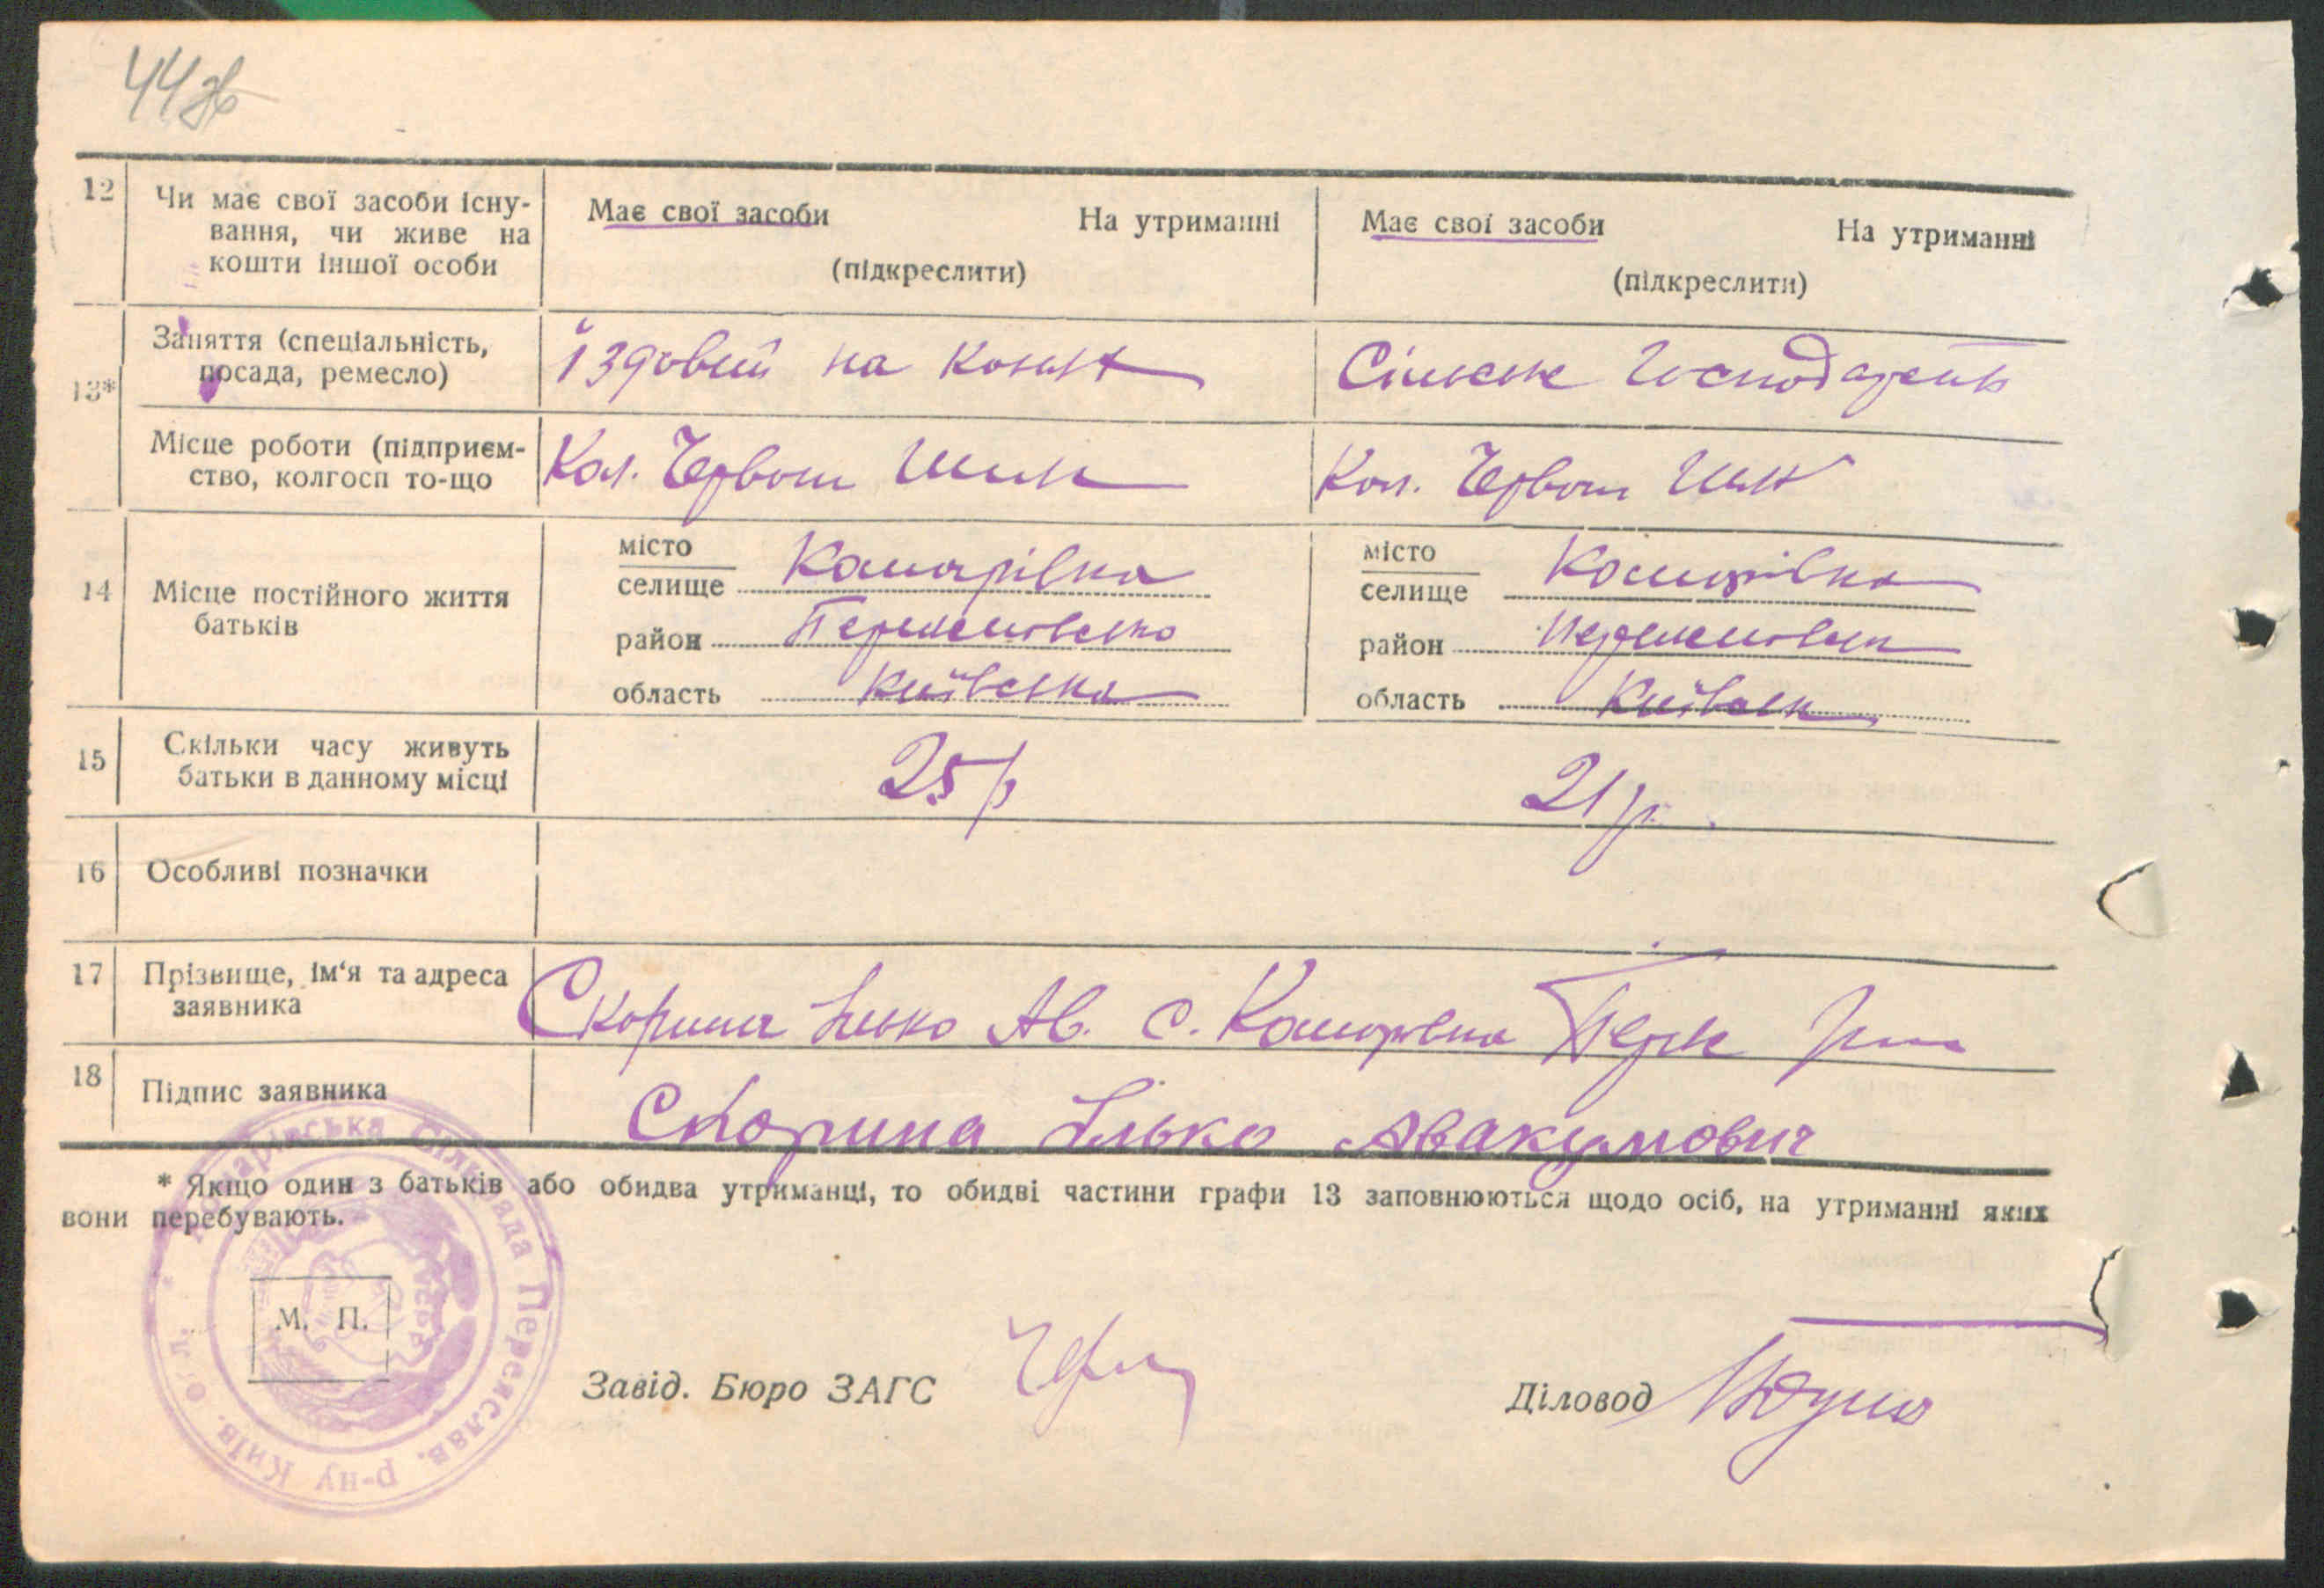 44зв
12 Чи має свої засоби існу-
вання, чи живе на
кошти іншої особи
Має свої засоби На утриманні
(підкреслити)
Має свої засоби На утриманні
(підкреслити)
13*
Заняття (спеціальність,
посада, ремесло)
їздовий на
Сільське
Місце роботи (підприєм-
ство, колгосп то-що
Кол. Червон Шлях
Кол. Червон Шлях
14 Місце постійного життя
батьків
місто
селище Комарівка
район
область Київська
місто
селище Комарівка
район
область Київськ
15 Скільки часу живуть
батьки в данному місці
25 р
21 р.
16 Особливі позначки
17 Прізвище, ім'я та адреса
заявника
Скорина Ілько Ав. с. Комарівка
18 Підпис заявника
Скорина Ілько Авакумович
* Якщо один з батьків або обидва утриманці, то обидві частини графи 13 заповнюються щодо осіб, на утриманні яких
вони перебувають.
М. П.
Завід. Бюро ЗАГС
Діловод
Сільрада Переяслав. р-ну Київ.
УСРР